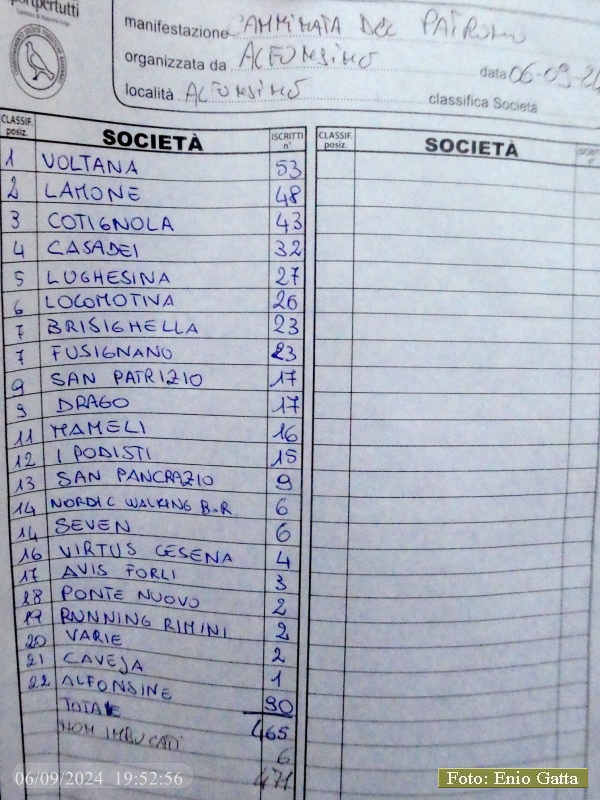 portpertutti
manifestazione CAMMINATA DEL PATRONO
organizzata da ALFONSINE
data 06-09-24
località ALFONSINE
classifica Società
CLASSIF. posiz. SOCIETÀ ISCRITTI n° CLASSIF. posiz. SOCIETÀ
1 VOLTANA 53
2 LAMONE 48
3 COTIGNOLA 43
4 CASADEI 32
5 LUGHESINA 27
6 LOCOMOTIVA 26
7 BRISIGHELLA 23
7 FUSIGNANO 23
9 SAN PATRIZIO 17
9 DRAGO 17
11 MAMELI 16
12 I PODISTI 15
13 SAN PANCRAZIO 9
14 NORDIC WALKING B.R. 6
14 SEVEN 6
16 VIRTUS CESENA 4
17 AVIS FORLI 3
18 PONTE NUOVO 2
19 RUNNING RIMINI 2
20 VARIE 2
21 CAVEJA 1
22 ALFONSINE 90
TOTALE 465
NON IMBUCATI 6
471
06/09/2024 19:52:56
Foto: Enio Gatta